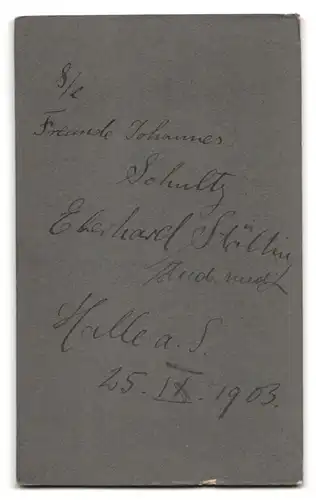 S/l
Freunde Johannes
Schultz
Eberhard
stud. med.
Halle a. S.
25. IX. 1903.